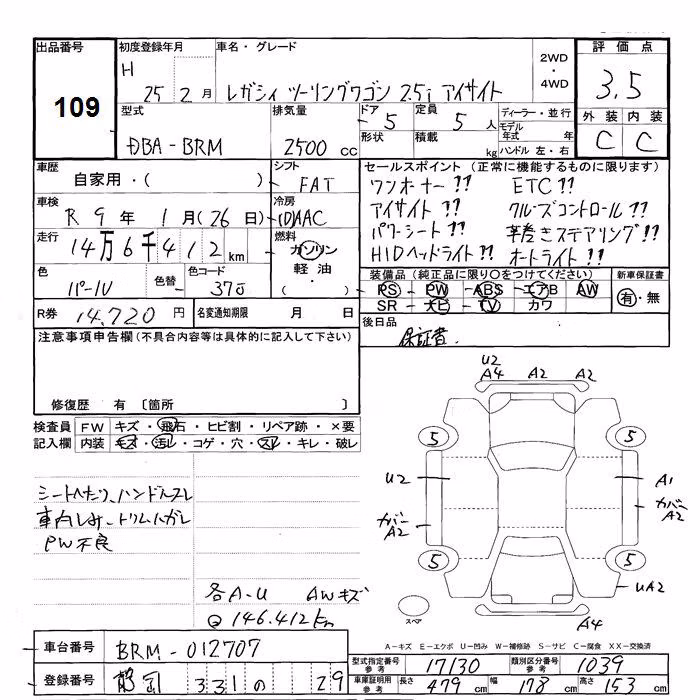 出品番号
109
初度登録年月
H 25 2月
車名・グレード
レガシィ ツーリングワゴン 2.5i アイサイト
2WD
・
4WD
評価点
3.5
外装 内装
C C
型式
DBA-BRM
排気量
2500 cc
ドア 5
形状
定員 5 人
積載 kg
ディーラー・並行
モデル年式 年
ハンドル 左・右
車歴
自家用・( )
シフト
FAT
車検
R 9年 1月(26日)
冷房
AAC
走行
14万6千412 km
燃料
ガソリン
軽油
・( )
色
パール
色替
色コード
37J
R券 14,720 円
名変通知期限 月 日
セールスポイント(正常に機能するものに限ります)
ワンオーナー!! ETC!!
アイサイト!! クルーズコントロール!!
パワーシート!! 革巻きステアリング!!
HIDヘッドライト!! オートライト!!
装備品(純正品に限り○をつけてください)
PS PW ABS エアB AW
SR ナビ TV カワ
新車保証書
有・無
後日品
保証書.
注意事項申告欄(不具合内容等は具体的に記入して下さい)
修復歴 有 〔箇所 〕
検査員記入欄
FW キズ・飛石・ヒビ割・リペア跡・×要
内装 キズ・汚レ・コゲ・穴・スレ・キレ・破レ
シートヘたり、ハンドルスレ
車内しみ、トリムハガレ
PW不良
各A-U AWキズ
@ 146.412km
U2
A4 A2 A2
5 5
U2 A1
カバーA2 カバーA2
5 5
UA2
スペア
A4
A-キズ E-エクボ U-凹み W-補修跡 S-サビ C-腐食 XX-交換済
車台番号 BRM-012707
登録番号 331 の 29
型式指定番号参考 17130 類別区分番号参考 1039
車庫証明用参考 長さ 479 cm 幅 178 cm 高さ 153 cm